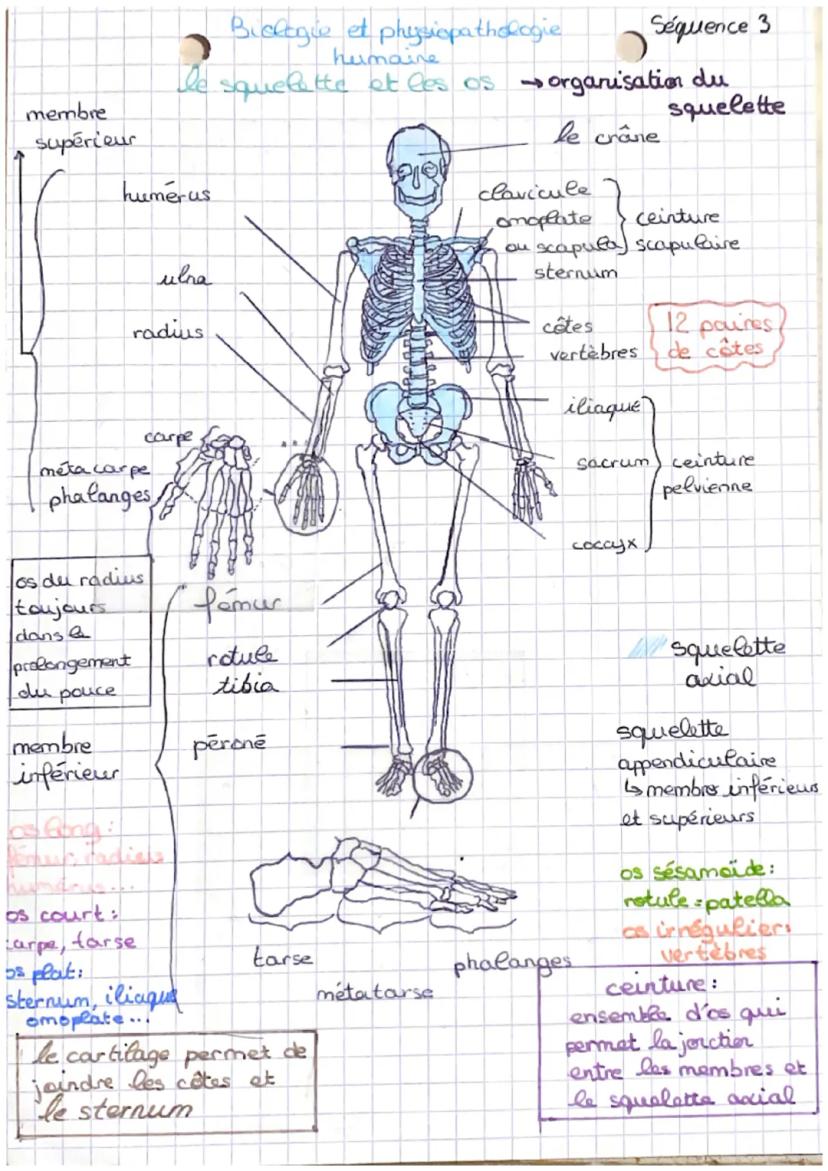 Biologie et physiopathologie
humaine
Séquence 3
le squelette et les os → organisation du
squelette
membre
supérieur
le crâne
humérus
clavicule
omoplate
ou scapula
ceinture
scapulaire
sternum
ulna
radius
côtes
12 paires
de côtes
vertèbres
iliaque
carpe
métacarpe
phalanges
sacrum
ceinture
pelvienne
coccyx
os du radius
toujours
dans le
prolongement
du pouce
fémur
rotule
tibia
squelette
axial
membre
inférieur
péroné
squelette
appendiculaire
↳ membres inférieurs
et supérieurs
os long:
fémur, radius
humérus...
os court:
carpe, tarse
os plat:
sternum, iliaque
omoplate...
os sésamoïde:
rotule = patella
os irrégulier:
vertèbres
tarse
métatarse
phalanges
ceinture:
ensemble d'os qui
permet la jonction
entre les membres et
le squelette axial
le cartilage permet de
joindre les côtes et
le sternum